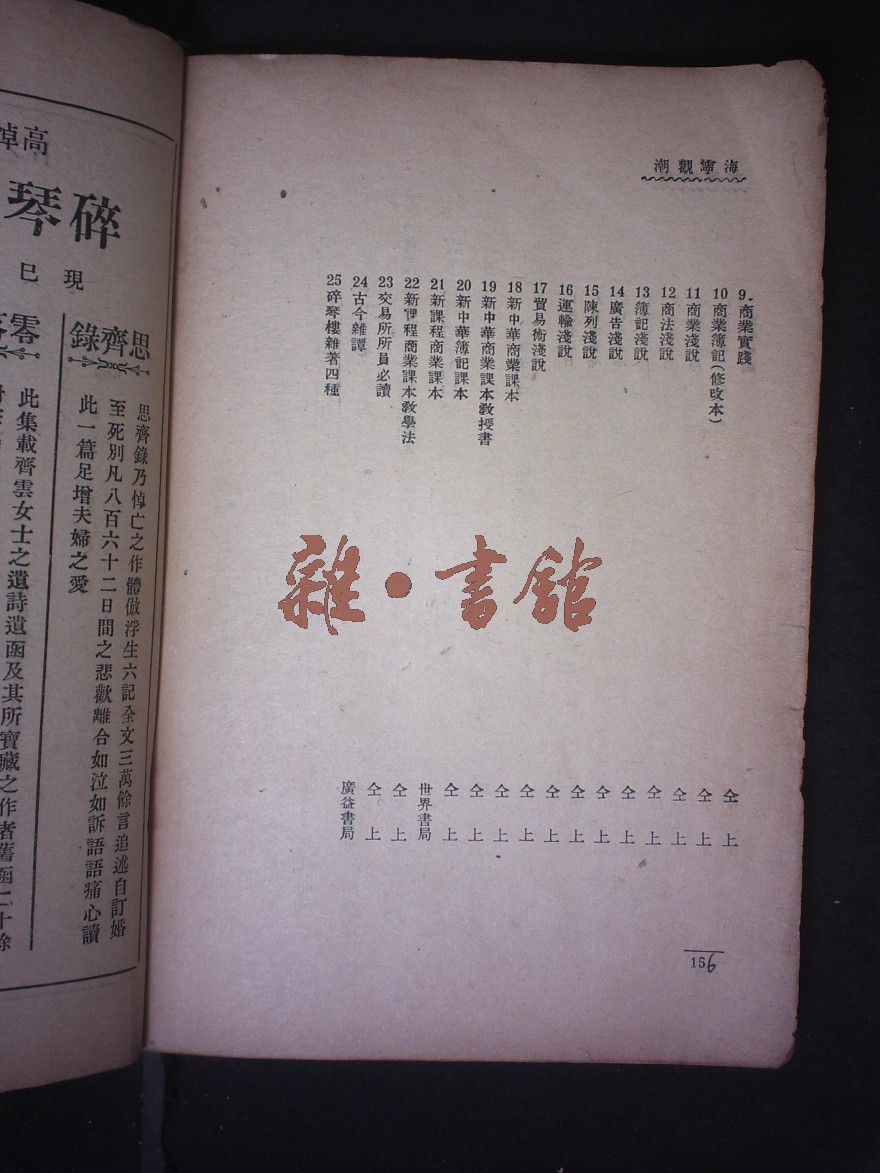 海寧觀潮
9 商業實踐
10 商業簿記(修改本)
11 商業淺說
12 商法淺說
13 簿記淺說
14 廣告淺說
15 陳列淺說
16 運輸淺說
17 貿易術淺說
18 新中華商業課本
19 新中華商業課本敎授書
20 新中華簿記課本
21 新課程商業課本
22 新課程商業課本敎學法
23 交易所所員必讀
24 古今雜譚
25 碎琴樓雜著四種
仝上
仝上
仝上
仝上
仝上
仝上
仝上
仝上
仝上
仝上
仝上
仝上
世界書局
仝上
仝上
廣益書局
156
雜•書館
高
碎琴
現巳
思齊錄
思齊錄乃悼亡之作體倣浮生六記全文三萬餘言追述自訂婚
至死別凡八百六十二日間之悲歡離合如泣如訴語語痛心讀
此一篇足增夫婦之愛
零
此集載齊雲女士之遺詩遺函及其所寶藏之作者舊函二十餘